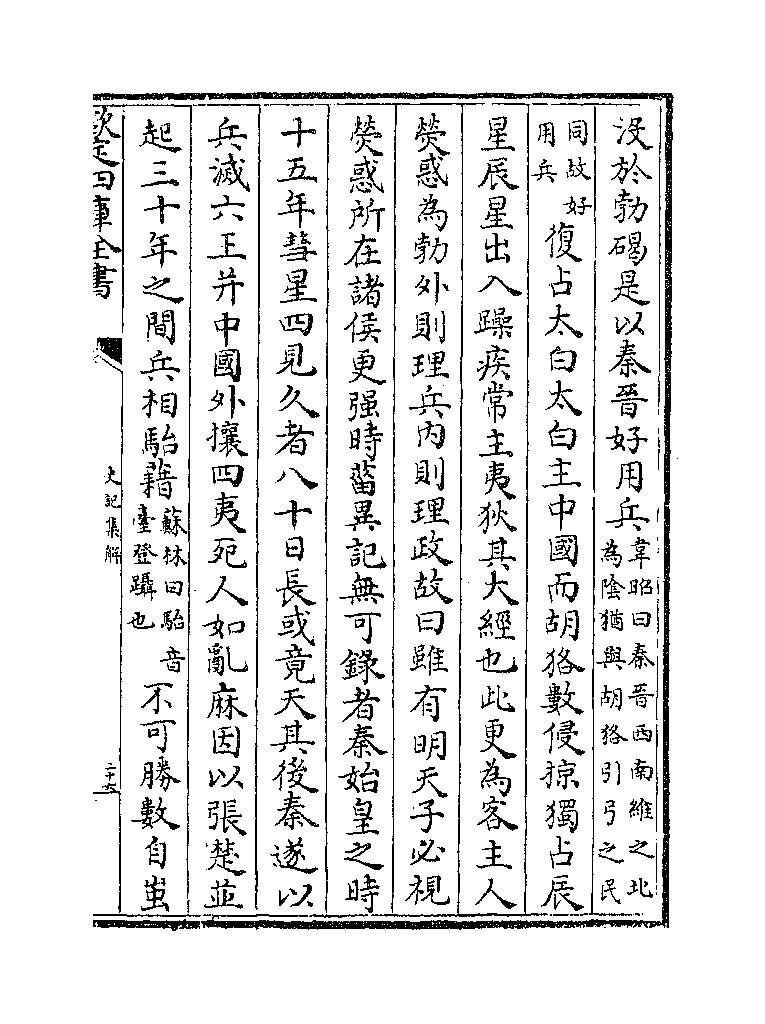 没於勃碣是以秦晉好用兵韋昭曰秦晉西南維之北為陰猶與胡狢引弓之民
同故好用兵復占太白太白主中國而胡狢數侵掠獨占辰
星辰星出入躁疾常主夷狄其大經也此更為客主人
熒惑為勃外則理兵内則理政故曰雖有明天子必視
熒惑所在諸侯更强時菑異記無可錄者秦始皇之時
十五年彗星四見久者八十日長或竟天其後秦遂以
兵滅六王并中國外攘四夷死人如亂麻因以張楚並
起三十年之間兵相駘藉蘇林曰駘音臺登躡也不可勝數自蚩
欽定四庫全書
史記集解
二十六